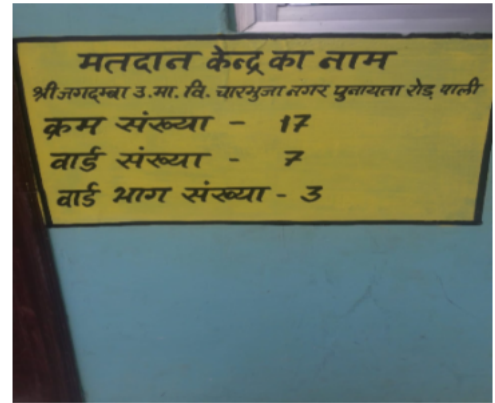 मतदान केन्द्र का नाम
श्री जगदम्बा उ.मा. वि. चारभुजा नगर पुनायता रोड़ पाली
क्रम संख्या - 17
वार्ड संख्या - 7
वार्ड भाग संख्या - 3